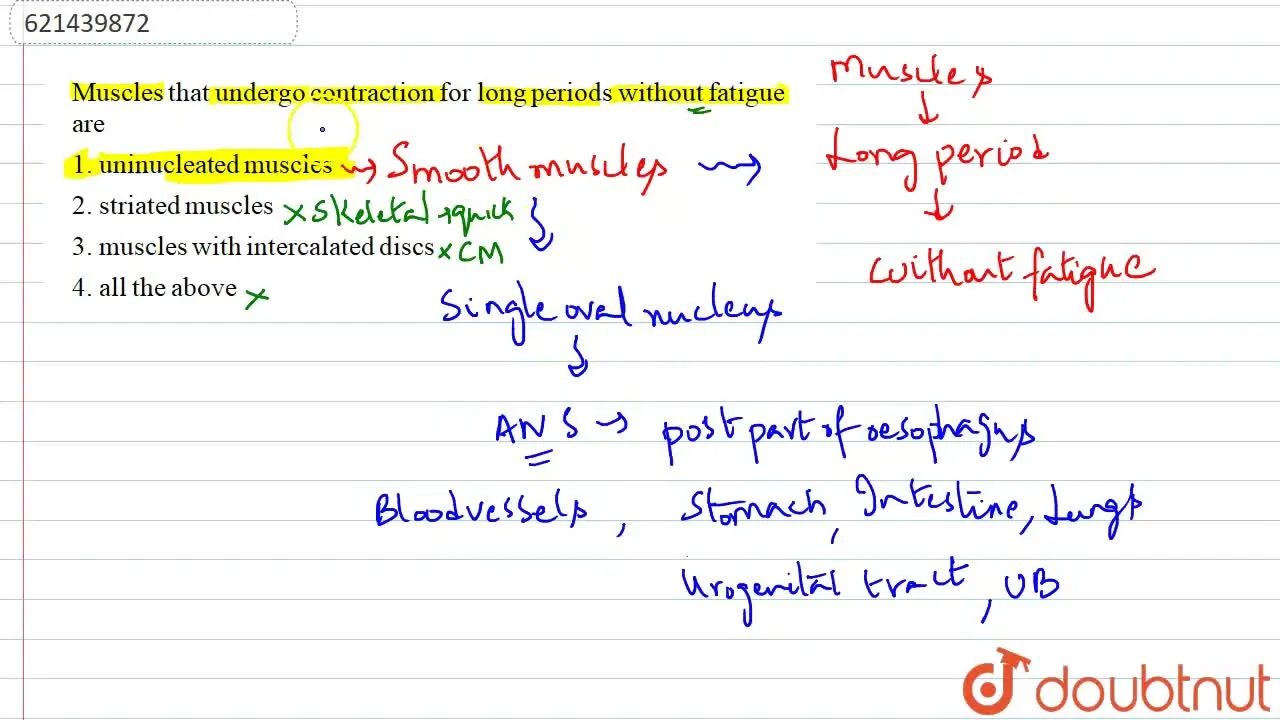 621439872
Muscles that undergo contraction for long periods without fatigue
are
1. uninucleated muscles → Smooth muscles →
2. striated muscles × Skeletal → quick
3. muscles with intercalated discs × CM
4. all the above ×
Muscles
↓
Long period
↓
without fatigue
↓
Single oval nucleus
↓
ANS → post part of oesophagus
Bloodvessels, Stomach, Intestine, Lungs
Urogenital tract, UB
doubtnut